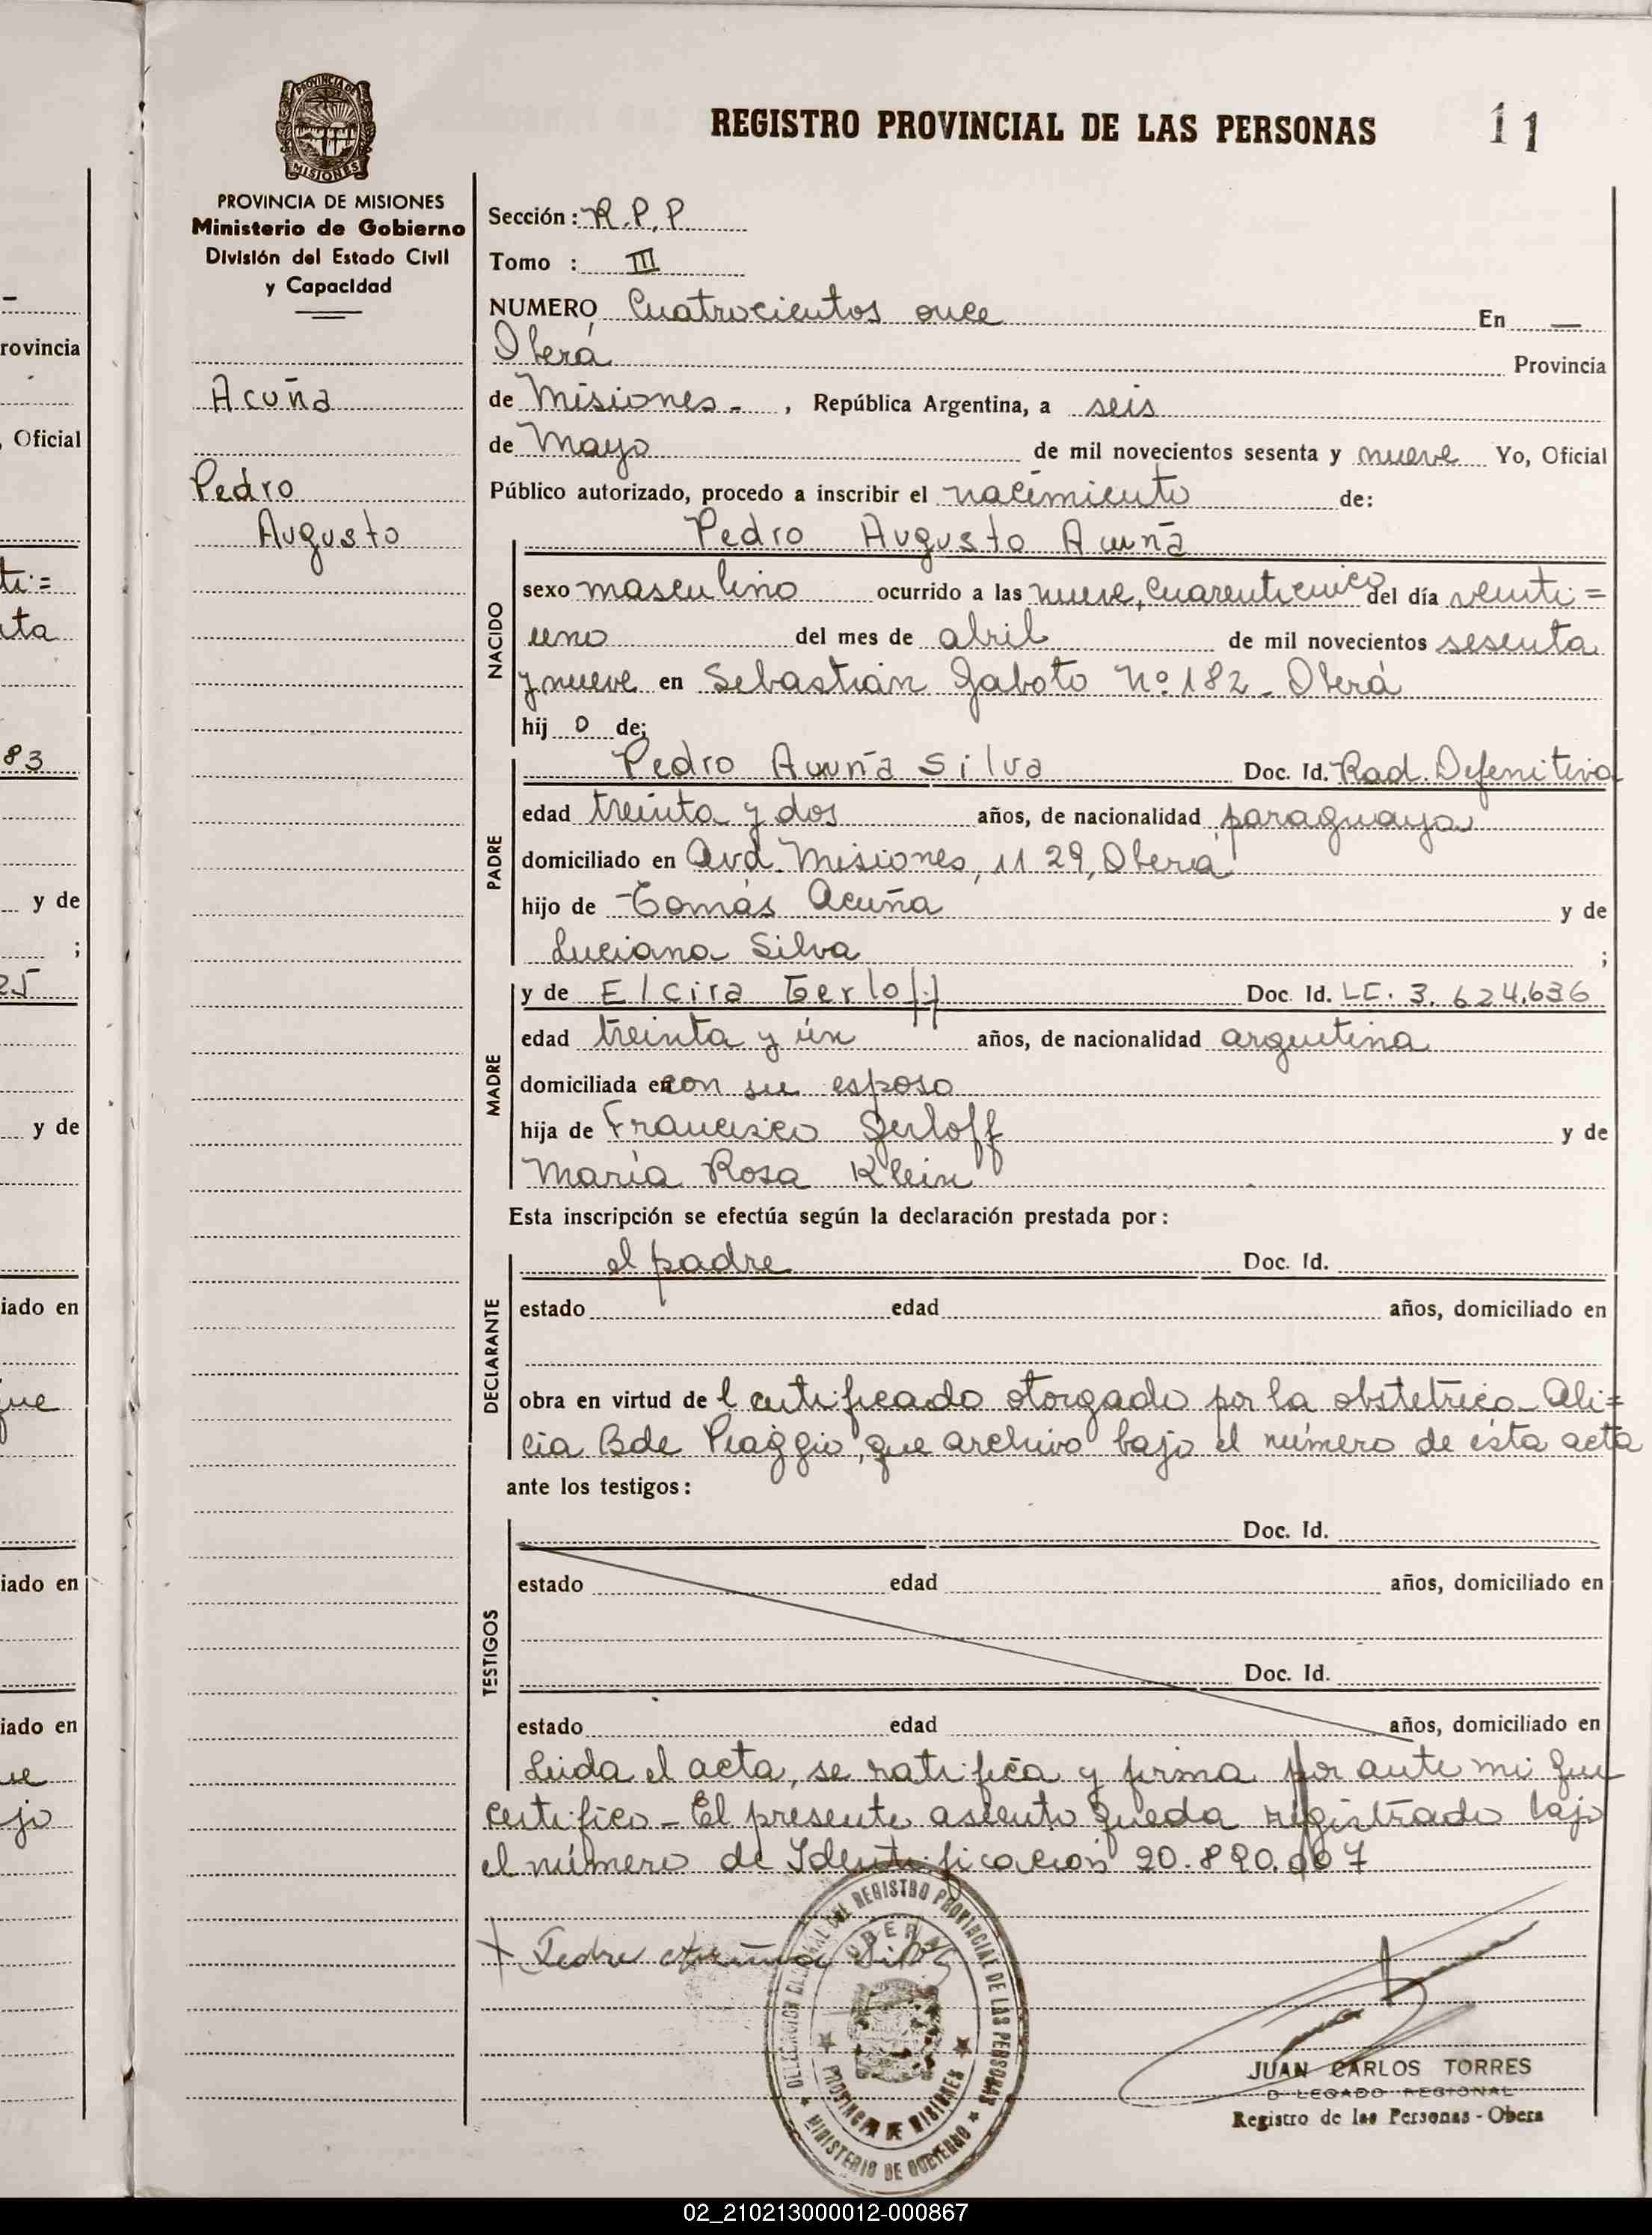 REGISTRO PROVINCIAL DE LAS PERSONAS 11
PROVINCIA DE MISIONES
MISIONES
PROVINCIA DE MISIONES
Ministerio de Gobierno
División del Estado Civil
y Capacidad
Acuña
Pedro
Augusto
Sección: R.P.P.
Tomo : III
NUMERO Cuatrocientos once En —
Oberá Provincia
de Misiones - , República Argentina, a seis
de Mayo de mil novecientos sesenta y nueve Yo, Oficial
Público autorizado, procedo a inscribir el nacimiento de:
Pedro Augusto Acuña
NACIDO
sexo masculino ocurrido a las nueve, cuarenticinco del día veinti=
uno del mes de abril de mil novecientos sesenta
y nueve en Sebastián Gaboto Nº 182 - Oberá
hij o de;
PADRE
Pedro Acuña Silva Doc. Id. Rad. Defenitiva
edad treinta y dos años, de nacionalidad paraguaya
domiciliado en Avd. Misiones, 11 29, Oberá
hijo de Tomás Acuña y de
Luciana Silva ;
MADRE
y de Elcira Gerloff Doc. Id. LC. 3.624.636
edad treinta y ún años, de nacionalidad argentina
domiciliada en con su esposo
hija de Francisco Gerloff y de
María Rosa Klein
Esta inscripción se efectúa según la declaración prestada por:
DECLARANTE
el padre Doc. Id.
estado edad años, domiciliado en
obra en virtud de l certificado otorgado por la obstetrica Ali=
cia B de Piaggio, que archivo bajo el número de ésta acta
ante los testigos:
TESTIGOS
Doc. Id.
estado edad años, domiciliado en
Doc. Id.
estado edad años, domiciliado en
Leida el acta, se ratifica y firma por ante mi que
certifico - El presente asiento queda registrado bajo
el número de Identificación 20.890.007
Pedro Acuña Silva
DELEGACION REGIONAL DEL REGISTRO PROVINCIAL DE LAS PERSONAS
OBERA
PROVINCIA DE MISIONES
MINISTERIO DE GOBIERNO
JUAN CARLOS TORRES
D LEGADO REGIONAL
Registro de las Personas - Obera
rovincia
, Oficial
ti=
ta
83
y de
;
25
y de
iado en
que
iado en
iado en
ue
jo
02_210213000012-000867